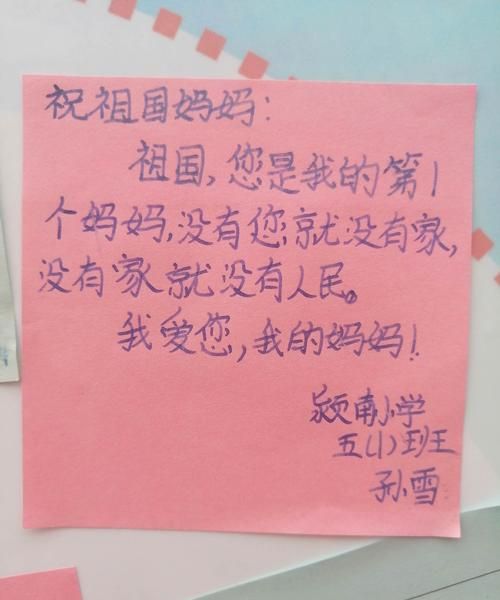 祝祖国妈妈：
祖国，您是我的第1
个妈妈，没有您就没有家，
没有家就没有人民。
我爱您，我的妈妈！
颍南小学
五(1)班
孙雪